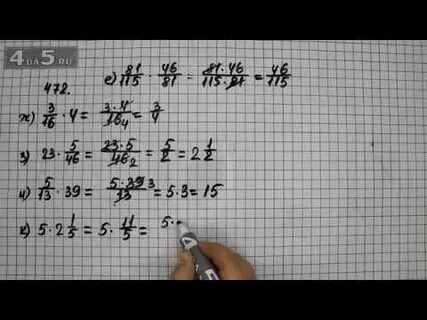 4DA5.RU
472.
е) 81/115 · 46/81 = 81·46/115·81 = 46/115
ж) 3/16 · 4 = 3·4/16 4 = 3/4
з) 23 · 5/46 = 23·5/46 2 = 5/2 = 2 1/2
и) 5/13 · 39 = 5·39 3/13 = 5·3 = 15
к) 5 · 2 1/5 = 5 · 11/5 = 5·